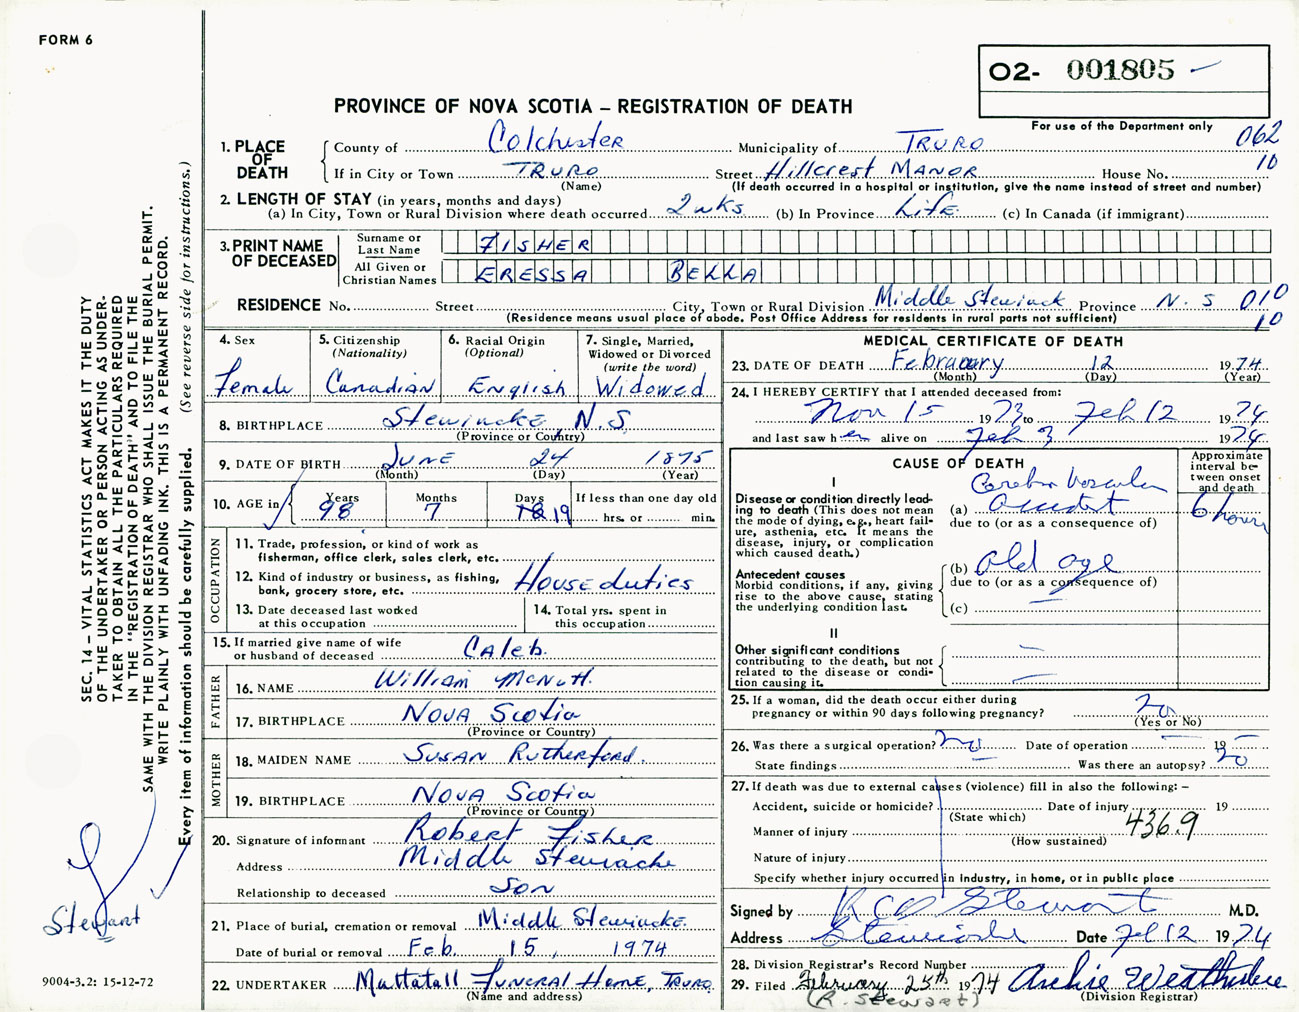 FORM 6
O2- 001805
PROVINCE OF NOVA SCOTIA – REGISTRATION OF DEATH
For use of the Department only
062
10
1. PLACE OF DEATH
County of Colchester Municipality of TRURO
If in City or Town TRURO Street Hillcrest MANOR House No.
(Name) (If death occurred in a hospital or institution, give the name instead of street and number)
2. LENGTH OF STAY (in years, months and days)
(a) In City, Town or Rural Division where death occurred 2 wks. (b) In Province Life (c) In Canada (if immigrant)
3. PRINT NAME OF DECEASED
Surname or Last Name FISHER
All Given or Christian Names ERESSA BELLA
RESIDENCE No. Street City, Town or Rural Division Middle Stewiack Province N. S 010
(Residence means usual place of abode. Post Office Address for residents in rural parts not sufficient) 10
4. Sex Female
5. Citizenship (Nationality) Canadian
6. Racial Origin (Optional) English
7. Single, Married, Widowed or Divorced (write the word) Widowed
8. BIRTHPLACE Stewiacke N.S.
(Province or Country)
9. DATE OF BIRTH JUNE 24 1875
(Month) (Day) (Year)
10. AGE in Years 98 Months 7 Days 18 19 If less than one day old
hrs. or min.
OCCUPATION
11. Trade, profession, or kind of work as fisherman, office clerk, sales clerk, etc.
12. Kind of industry or business, as fishing, bank, grocery store, etc. House duties
13. Date deceased last worked at this occupation
14. Total yrs. spent in this occupation
15. If married give name of wife or husband of deceased Caleb.
FATHER
16. NAME William McNutt.
17. BIRTHPLACE Nova Scotia
(Province or Country)
MOTHER
18. MAIDEN NAME Susan Rutherford.
19. BIRTHPLACE Nova Scotia
(Province or Country)
20. Signature of informant Robert Fisher
Address Middle Stewiacke
Relationship to deceased Son
21. Place of burial, cremation or removal Middle Stewiacke
Date of burial or removal Feb. 15, 1974
22. UNDERTAKER Mattatall Funeral Home, Truro.
(Name and address)
MEDICAL CERTIFICATE OF DEATH
23. DATE OF DEATH February 12 1974
(Month) (Day) (Year)
24. I HEREBY CERTIFY that I attended deceased from:
Nov 15 1973 to Feb 12 1974
and last saw her alive on Feb 3 1974
CAUSE OF DEATH
Approximate interval between onset and death
I
Disease or condition directly leading to death (This does not mean the mode of dying, e.g., heart failure, asthenia, etc. It means the disease, injury, or complication which caused death.)
(a) Cerebro Vascular Accident 6 hours
due to (or as a consequence of)
Antecedent causes
Morbid conditions, if any, giving rise to the above cause, stating the underlying condition last.
(b) Old age
due to (or as a consequence of)
(c)
II
Other significant conditions contributing to the death, but not related to the disease or condition causing it.
25. If a woman, did the death occur either during pregnancy or within 90 days following pregnancy? No
(Yes or No)
26. Was there a surgical operation? no Date of operation 19
State findings Was there an autopsy? No
27. If death was due to external causes (violence) fill in also the following: –
Accident, suicide or homicide? Date of injury 19
(State which)
Manner of injury 436.9
(How sustained)
Nature of injury
Specify whether injury occurred in industry, in home, or in public place
Signed by R C D Stewart M.D.
Address Stewiacke Date Feb 12 1974
28. Division Registrar's Record Number
29. Filed February 25th 1974 Archie Weatherbee
(R. Stewart) (Division Registrar)
SEC. 14 – VITAL STATISTICS ACT MAKES IT THE DUTY
OF THE UNDERTAKER OR PERSON ACTING AS UNDER-
TAKER TO OBTAIN ALL THE PARTICULARS REQUIRED
IN THE "REGISTRATION OF DEATH" AND TO FILE THE
SAME WITH THE DIVISION REGISTRAR WHO SHALL ISSUE THE BURIAL PERMIT.
WRITE PLAINLY WITH UNFADING INK. THIS IS A PERMANENT RECORD.
Every item of information should be carefully supplied. (See reverse side for instructions.)
Stewart
9004-3.2: 15-12-72